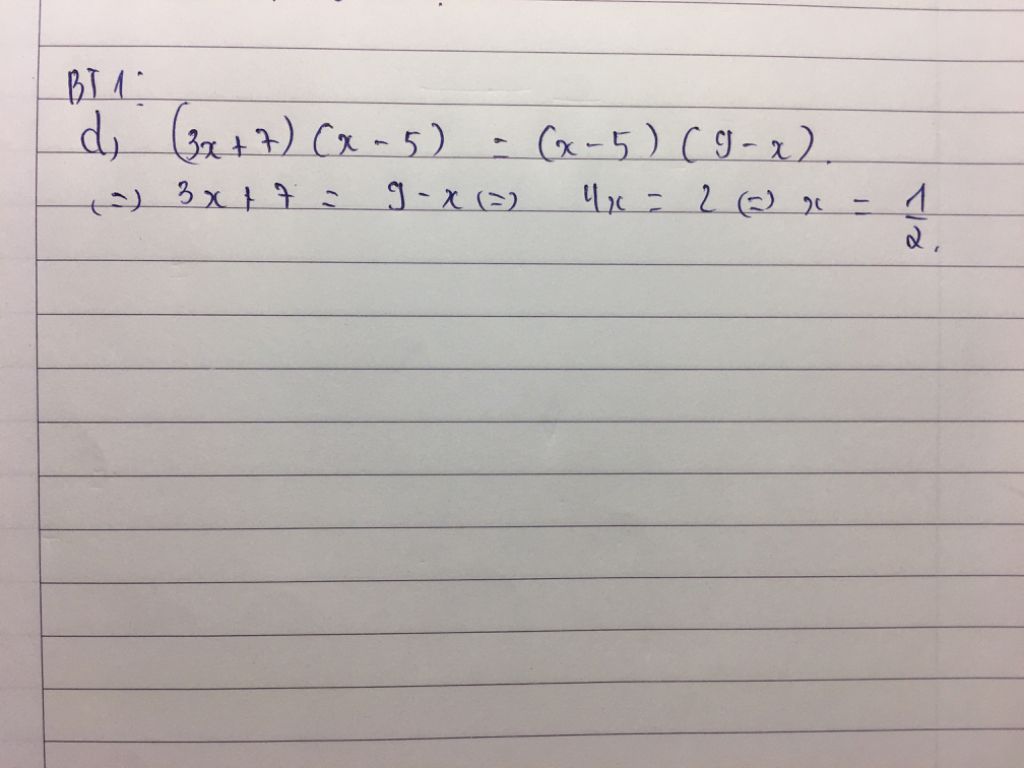 BT 1:
d, (3x + 7) (x - 5) = (x - 5) (9 - x).
(=) 3x + 7 = 9 - x (=) 4x = 2 (=) x = 1/2.